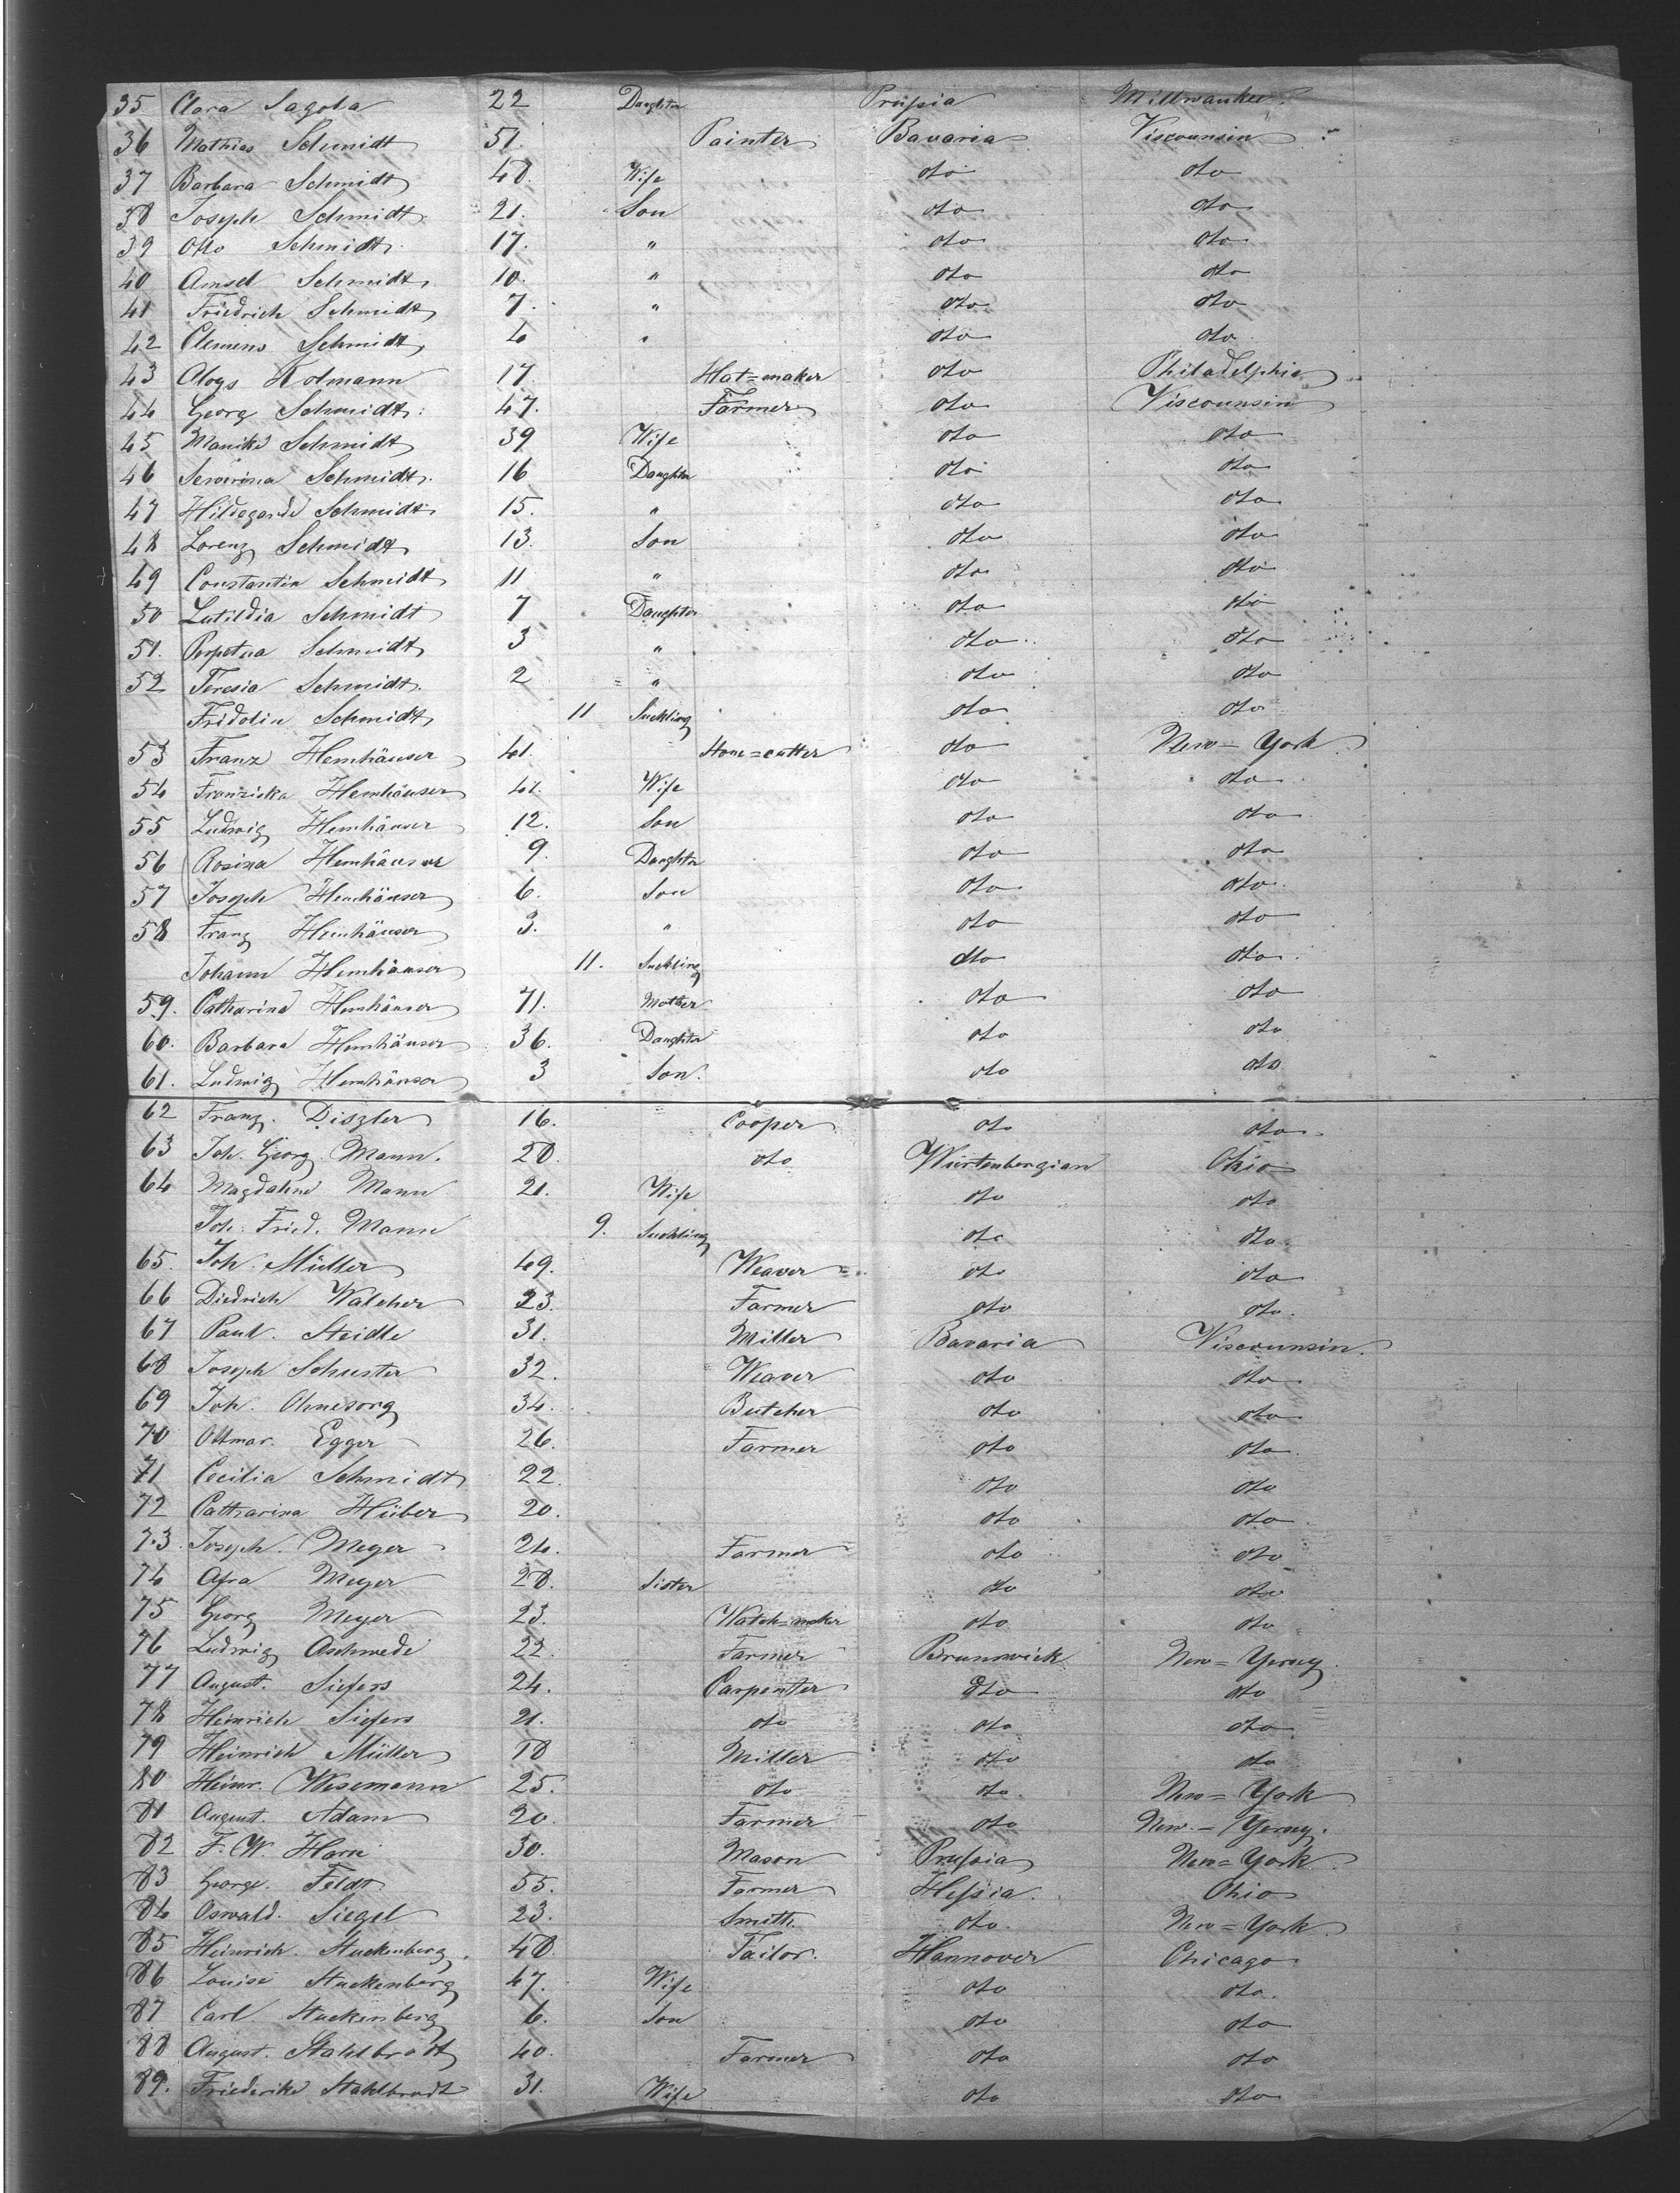 35 Clara Sagota 22 Daughter Prussia Millwaukee
36 Mathias Schmidt 51. Painter Bavaria Viscounsin
37 Barbara Schmidt 48. Wife oto oto
38 Joseph Schmidt 21. Son oto oto
39 Otto Schmidt 17. " oto oto
40 Amsel Schmidt 10. " oto oto
41 Friedrich Schmidt 7. " oto oto
42 Clemens Schmidt 4 " oto oto
43 Aloys Kolmann 17 Hat=maker oto Philadelphia
44 Georg Schmidt 47. Farmer oto Viscounsin
45 Schmidt 39 Wife oto oto
46 Severina Schmidt 16 Daughter oto oto
47 Hildegarde Schmidt 15. " oto oto
48 Lorenz Schmidt 13. Son oto oto
49 Constantin Schmidt 11 " oto oto
50 Lutildia Schmidt 7 Daughter oto oto
51. Perpetua Schmidt 3 " oto oto
52 Teresia Schmidt 2 " oto oto
Fridolin Schmidt 11 Suckling oto oto
53 Franz Hemhäuser 41. Stone=cutter oto New=York
54 Franziska Hemhäuser 41. Wife oto oto
55 Ludwig Hemhäuser 12. Son oto oto
56 Rosina Hemhäuser 9. Daughter oto oto
57 Joseph Hemhäuser 6. Son oto oto
58 Franz Hemhäuser 3. " oto oto
Johann Hemhäuser 11. Suckling oto oto
59. Catharina Hemhäuser 71. Mother oto oto
60. Barbara Hemhäuser 36. Daughter oto oto
61. Ludwig Hemhäuser 3 Son oto oto
62 Franz. Diszler 16. Cooper oto oto
63 Joh. Georg Mann. 28. oto Würtenbergian Ohio
64 Magdalene Mann 21. Wife oto oto
Joh. Fried. Mann 9. Suckling oto oto
65. Joh. Müller 49. Weaver oto oto
66 Diedrich Walcher 23. Farmer oto oto
67 Paul. Steidle 31. Miller Bavaria Viscounsin.
68 Joseph Schuster 32. Weaver oto oto
69 Joh. Ohnesorg 34. Butcher oto oto
70 Ottmar. Egger 26. Farmer oto oto
71 Cecilia Schmidt 22. oto oto
72 Catharina Hüber 20. oto oto
73. Joseph. Meyer 24. Farmer oto oto
74 Afra Meyer 28. Sister oto oto
75 Georg Meyer 23. Watch=maker oto oto
76 Ludwig Aschwede 22. Farmer Brunswick New=Yersey
77 August. Siefers 24. Carpenter oto oto
78 Heinrich Siefers 21. oto oto oto
79 Heinrich Müller 18 Miller oto oto
80 Heinr. Wesemann 25. oto oto New=York
81 August. Adam 20. Farmer oto New=Yersey.
82 F. W. 30. Mason Prussia New=York
83 George. Feldt 55. Farmer Hessia. Ohio
84 Oswald. Siegel 23. Smith. oto. New=York
85 Heinrich. Stuckenberg 48. Tailor. Hannover Chicago
86 Louise Stuckenberg 47. Wife oto oto.
87 Carl. Stuckenberg 6. Son oto oto
88 August. Stahlbrodt 40. Farmer oto oto
89. Friederike Stahlbrodt 31. Wife oto oto